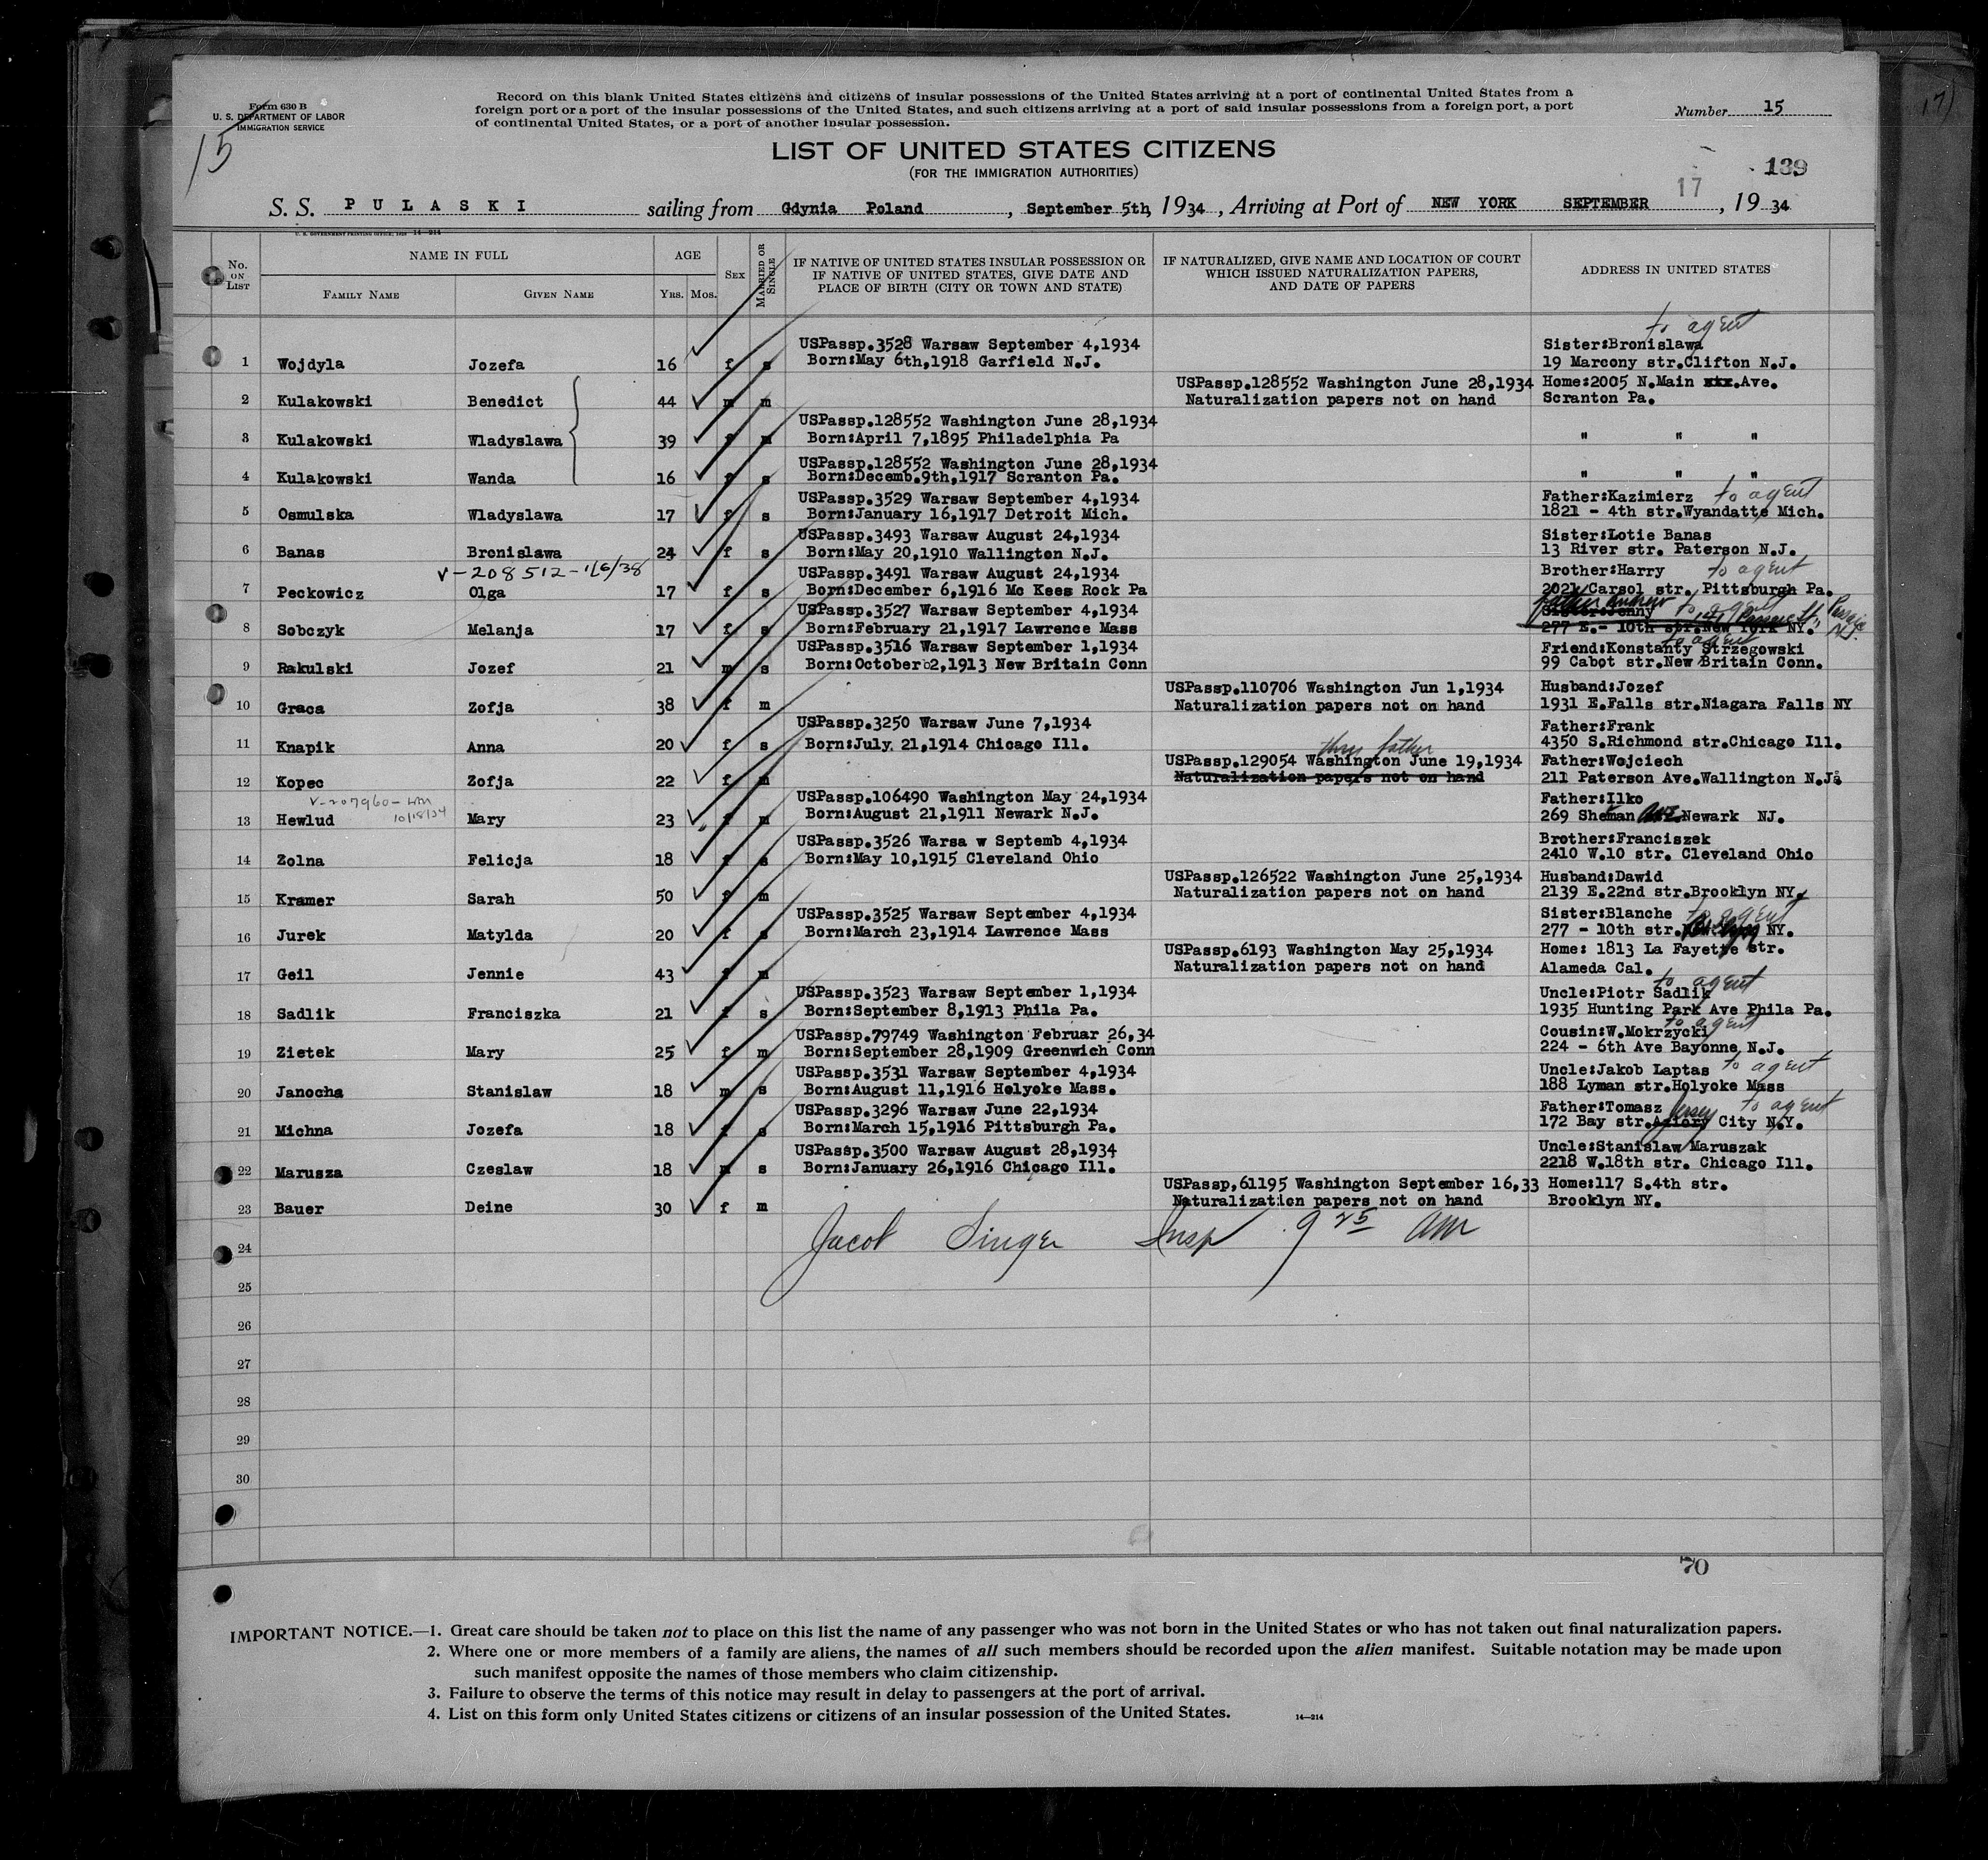 Form 630 B
U. S. DEPARTMENT OF LABOR
IMMIGRATION SERVICE
15
Record on this blank United States citizens and citizens of insular possessions of the United States arriving at a port of continental United States from a
foreign port or a port of the insular possessions of the United States, and such citizens arriving at a port of said insular possessions from a foreign port, a port
of continental United States, or a port of another insular possession.
Number 15
17)
LIST OF UNITED STATES CITIZENS
(FOR THE IMMIGRATION AUTHORITIES)
139
S. S. PULASKI sailing from Gdynia Poland, September 5th, 1934, Arriving at Port of NEW YORK SEPTEMBER 17, 1934
U. S. GOVERNMENT PRINTING OFFICE: 1929 14-214
No. ON LIST
NAME IN FULL
FAMILY NAME GIVEN NAME
AGE
YRS. MOS.
SEX
MARRIED OR SINGLE
IF NATIVE OF UNITED STATES INSULAR POSSESSION OR
IF NATIVE OF UNITED STATES, GIVE DATE AND
PLACE OF BIRTH (CITY OR TOWN AND STATE)
IF NATURALIZED, GIVE NAME AND LOCATION OF COURT
WHICH ISSUED NATURALIZATION PAPERS,
AND DATE OF PAPERS
ADDRESS IN UNITED STATES
to agent
USPassp.3528 Warsaw September 4,1934 Sister:Bronislawa
1 Wojdyla Jozefa 16 f s Born:May 6th,1918 Garfield N.J. 19 Marcony str.Clifton N.J.
USPassp.128552 Washington June 28,1934 Home:2005 N.Main xtx.Ave.
2 Kulakowski Benedict 44 m m Naturalization papers not on hand Scranton Pa.
USPassp.128552 Washington June 28,1934
3 Kulakowski Wladyslawa 39 f m Born:April 7,1895 Philadelphia Pa " " "
USPassp.128552 Washington June 28,1934
4 Kulakowski Wanda 16 f s Born:Decemb.9th,1917 Scranton Pa. " " "
USPassp.3529 Warsaw September 4,1934 Father:Kazimierz to agent
5 Osmulska Wladyslawa 17 f s Born:January 16,1917 Detroit Mich. 1821 - 4th str.Wyandatte Mich.
USPassp.3493 Warsaw August 24,1934 Sister:Lotie Banas
6 Banas Bronislawa 24 f s Born:May 20,1910 Wallington N.J. 13 River str. Paterson N.J.
V-208512-1/6/38 USPassp.3491 Warsaw August 24,1934 Brother:Harry to agent
7 Peckowicz Olga 17 f s Born:December 6,1916 Mc Kees Rock Pa 2021 Carsol str. Pittsburgh Pa.
Father Andrew to agent
USPassp.3527 Warsaw September 4,1934 Sister:Jenny Passaic St, Passaic N.J.
8 Sobczyk Melanja 17 f s Born:February 21,1917 Lawrence Mass 277 E.- 10th str.New York NY.
to agent
USPassp.3516 Warsaw September 1,1934 Friend:Konstanty Strzegowski
9 Rakulski Jozef 21 m s Born:October 2,1913 New Britain Conn 99 Cabot str.New Britain Conn.
USPassp.110706 Washington Jun 1,1934 Husband:Jozef
10 Graca Zofja 38 f m Naturalization papers not on hand 1931 E.Falls str.Niagara Falls NY
USPassp.3250 Warsaw June 7,1934 Father:Frank
11 Knapik Anna 20 f s Born:July 21,1914 Chicago Ill. 4350 S.Richmond str.Chicago Ill.
thru father
USPassp.129054 Washington June 19,1934 Father:Wojciech
12 Kopec Zofja 22 f m Naturalization papers not on hand 211 Paterson Ave.Wallington N.J.
V-207960- 10/18/34 USPassp.106490 Washington May 24,1934 Father:Ilko
13 Hewlud Mary 23 f m Born:August 21,1911 Newark N.J. 269 Sheman Ave Newark NJ.
USPassp.3526 Warsa w Septemb 4,1934 Brother:Franciszek
14 Zolna Felicja 18 f s Born:May 10,1915 Cleveland Ohio 2410 W.10 str. Cleveland Ohio
USPassp.126522 Washington June 25,1934 Husband:Dawid
15 Kramer Sarah 50 f m Naturalization papers not on hand 2139 E.22nd str.Brooklyn NY.
USPassp.3525 Warsaw September 4,1934 Sister:Blanche to agent
16 Jurek Matylda 20 f s Born:March 23,1914 Lawrence Mass 277 - 10th str. NY.
USPassp.6193 Washington May 25,1934 Home: 1813 La Fayette str.
17 Geil Jennie 43 f m Naturalization papers not on hand Alameda Cal.
to agent
USPassp.3523 Warsaw September 1,1934 Uncle:Piotr Sadlik
18 Sadlik Franciszka 21 f s Born:September 8,1913 Phila Pa. 1935 Hunting Park Ave Phila Pa.
to agent
USPassp.79749 Washington Februar 26,34 Cousin:W.Mokrzycki
19 Zietek Mary 25 f m Born:September 28,1909 Greenwich Conn 224 - 6th Ave Bayonne N.J.
USPassp.3531 Warsaw September 4,1934 Uncle:Jakob Laptas to agent
20 Janocha Stanislaw 18 m s Born:August 11,1916 Holyoke Mass. 188 Lyman str.Holyoke Mass
USPassp.3296 Warsaw June 22,1934 Father:Tomasz Jersey to agent
21 Michna Jozefa 18 f s Born:March 15,1916 Pittsburgh Pa. 172 Bay str. City N.Y.
USPassp.3500 Warsaw August 28,1934 Uncle:Stanislaw Maruszak
22 Marusza Czeslaw 18 m s Born:January 26,1916 Chicago Ill. 2218 W.18th str. Chicago Ill.
USPassp,61195 Washington September 16,33 Home:117 S.4th str.
23 Bauer Deine 30 f m Naturalization papers not on hand Brooklyn NY.
Jacob Singer Insp 9 25 AM
24
25
26
27
28
29
30
70
IMPORTANT NOTICE.—1. Great care should be taken not to place on this list the name of any passenger who was not born in the United States or who has not taken out final naturalization papers.
2. Where one or more members of a family are aliens, the names of all such members should be recorded upon the alien manifest. Suitable notation may be made upon
such manifest opposite the names of those members who claim citizenship.
3. Failure to observe the terms of this notice may result in delay to passengers at the port of arrival.
4. List on this form only United States citizens or citizens of an insular possession of the United States. 14—214